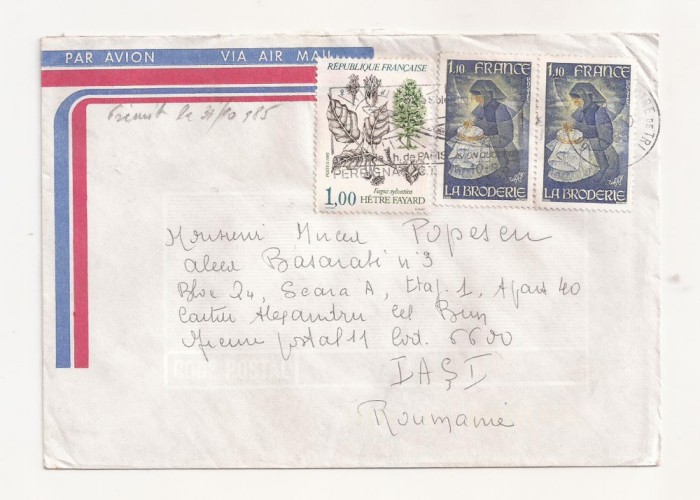 PAR AVION VIA AIR MAIL
RÉPUBLIQUE FRANÇAISE
1,00
Fagus sylvatica
HÊTRE FAYARD
1,10 FRANCE
LA BRODERIE
1,10 FRANCE
LA BRODERIE
de PARIS
PERPIGNAN
le 31/10 985
Monsieur Mircea Popescu
aleea Basarabi n°3
Bloc 24, Scara A, Etaj. 1, Apart 40
Cartier Alexandru cel Bun
Oficiul postal 11 Cod. 6600
IAŞI
Roumanie
POSTAL